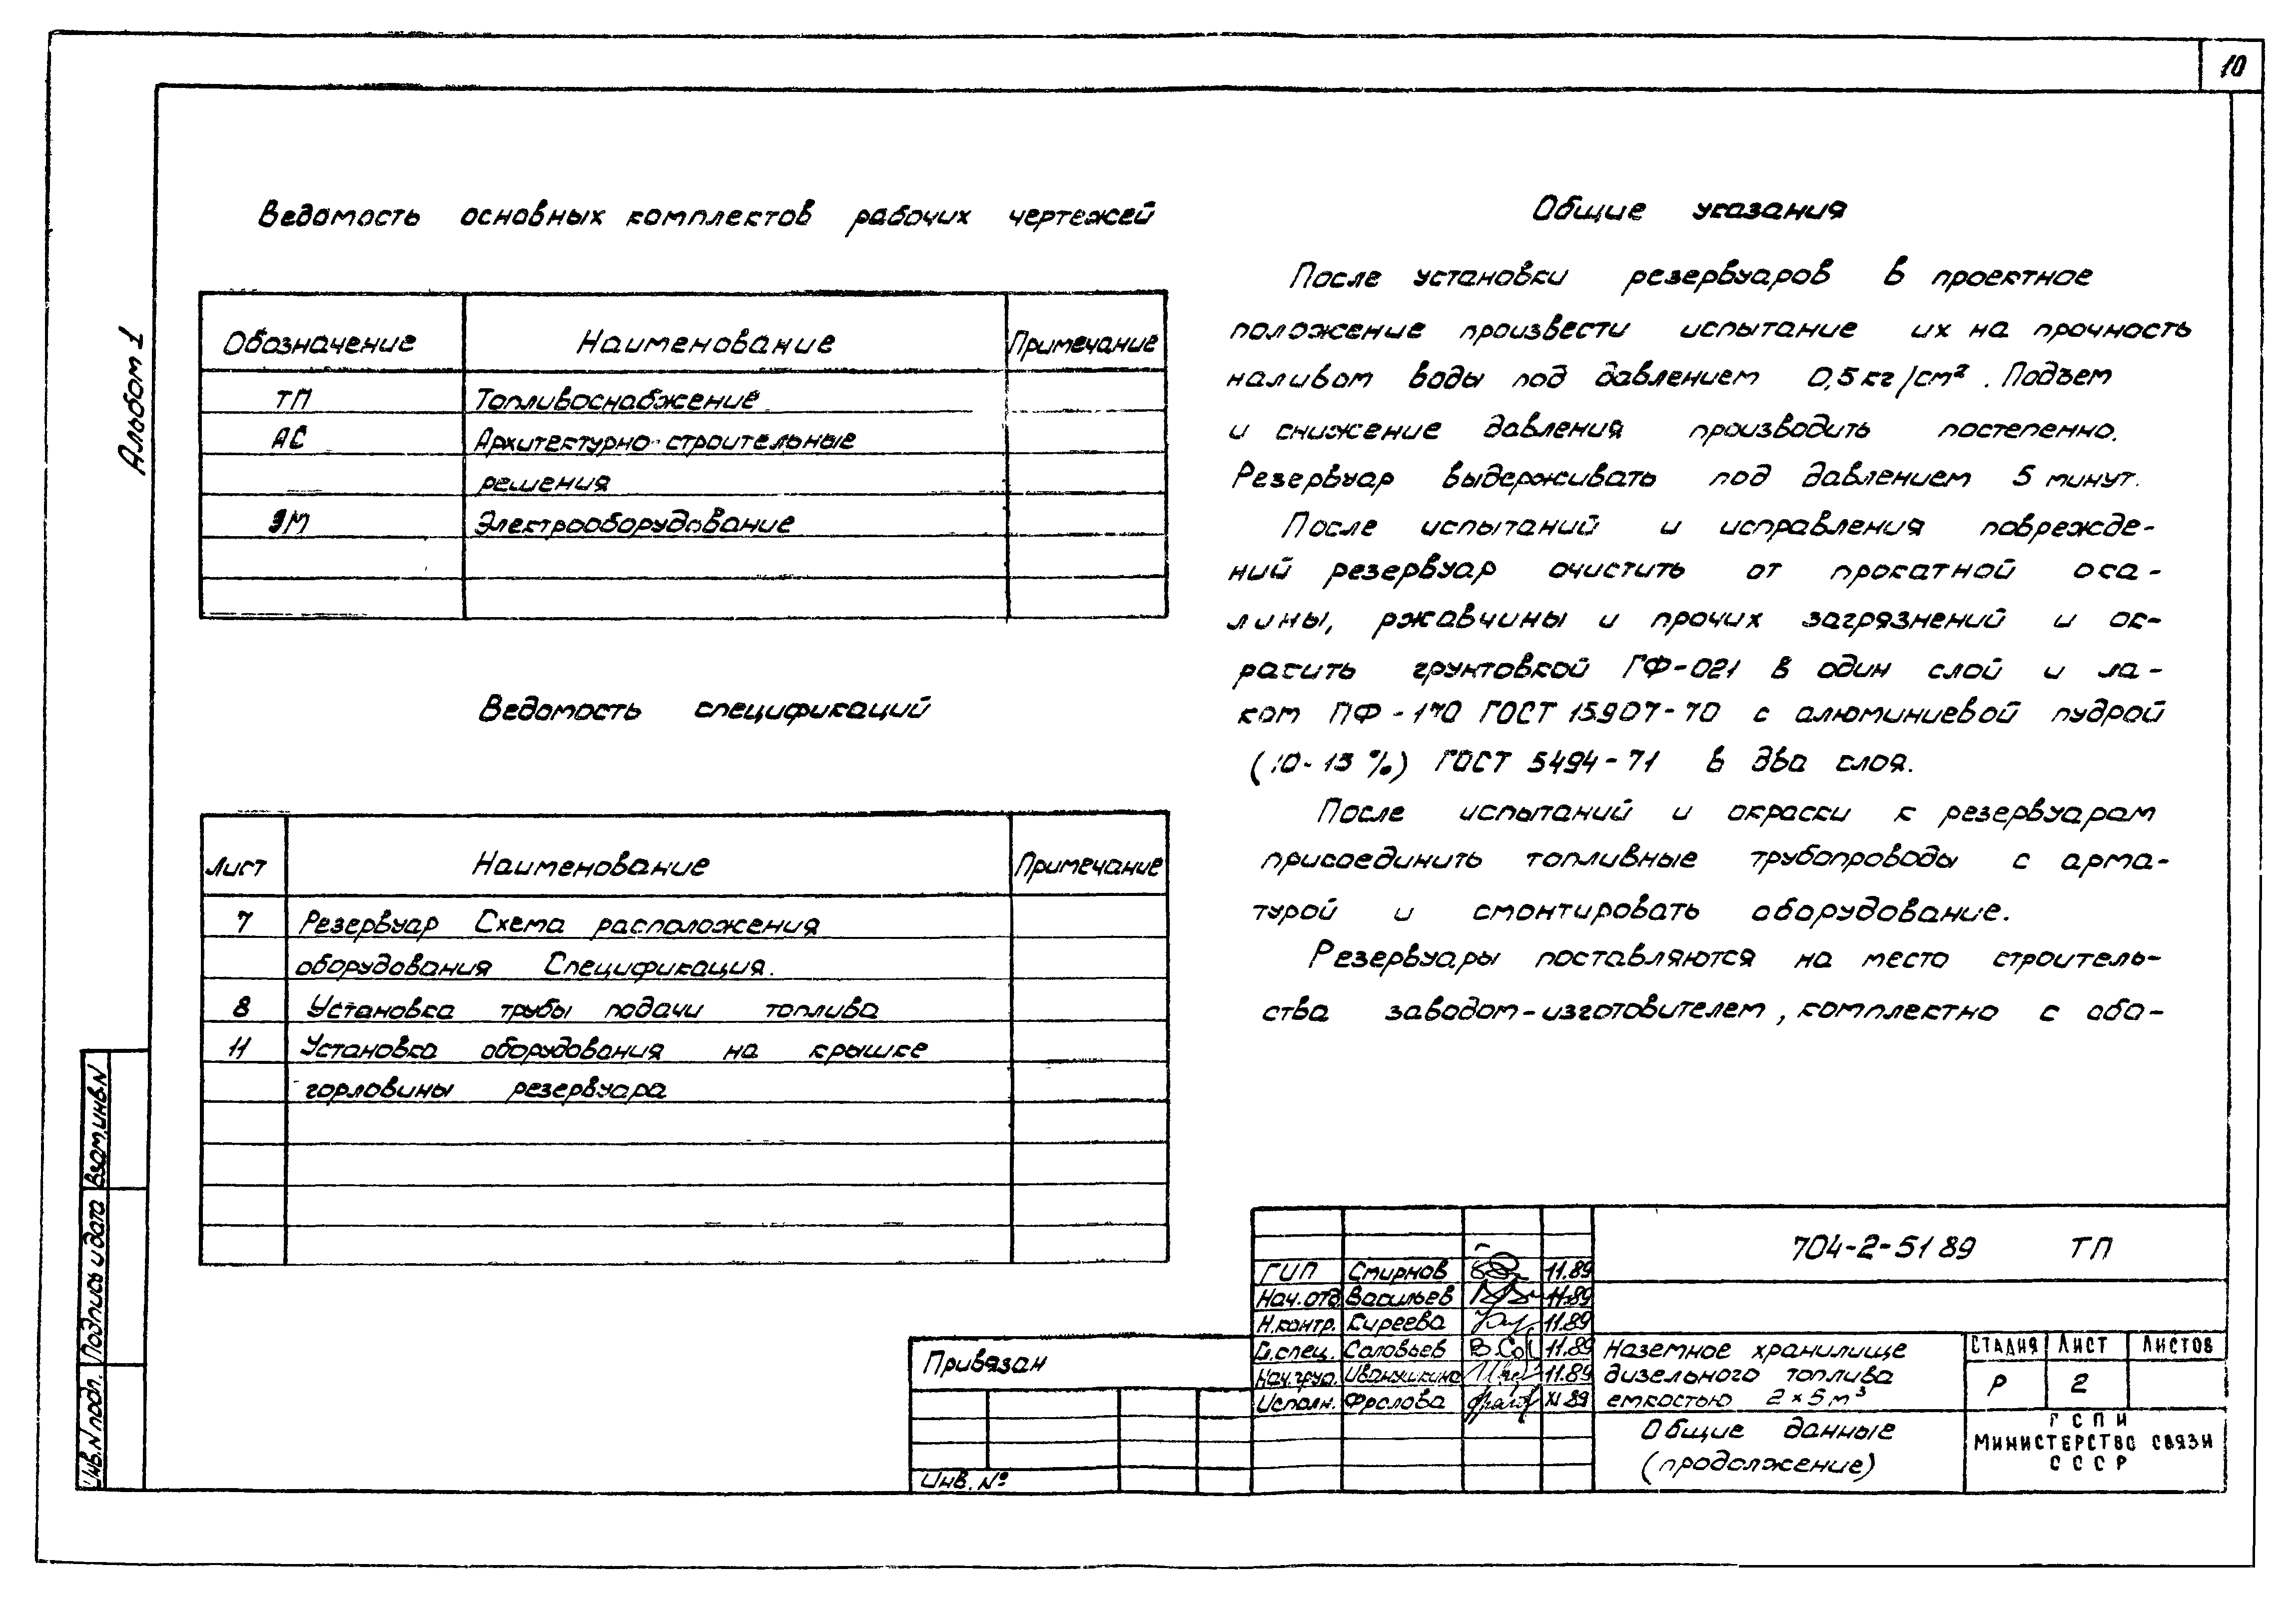 10
Альбом 1
Ведомость основных комплектов рабочих чертежей
Обозначение Наименование Примечание
ТП Топливоснабжение
АС Архитектурно-строительные
решения
ЭМ Электрооборудование
Ведомость спецификаций
Лист Наименование Примечание
7 Резервуар Схема расположения
оборудования Спецификация.
8 Установка трубы подачи топлива
11 Установка оборудования на крышке
горловины резервуара
Общие указания
После установки резервуаров в проектное
положение произвести испытание их на прочность
наливом воды под давлением 0,5кг/см². Подъем
и снижение давления производить постепенно.
Резервуар выдерживать под давлением 5 минут.
После испытаний и исправления поврежде-
ний резервуар очистить от прокатной ока-
лины, ржавчины и прочих загрязнений и ок-
расить грунтовкой ГФ-021 в один слой и ла-
ком ПФ-170 ГОСТ 15.907-70 с алюминиевой пудрой
(10-13%) ГОСТ 5494-71 в два слоя.
После испытаний и окраски к резервуарам
присоединить топливные трубопроводы с арма-
турой и смонтировать оборудование.
Резервуары поставляются на место строитель-
ства заводом-изготовителем, комплектно с обо-
Взам.инв.N
Подпись и дата
Инв.N подл.
Привязан
Инв. №
ГИП Смирнов 11.89
Нач.отд Васильев 11.89
Н.контр. Киреева 11.89
Гл.спец. Соловьев 11.89
Нач.груп. Иванушкина 11.89
Исполн. Фролова XI 89
704-2-51 89 ТП
Наземное хранилище
дизельного топлива
емкостью 2×5м³
Стадия Лист Листов
Р 2
Общие данные
(продолжение)
ГСПИ
Министерство связи
СССР